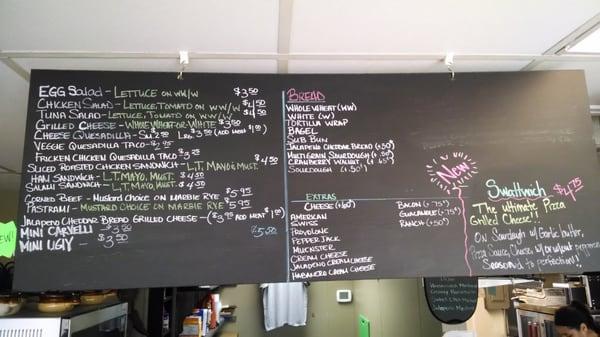 EGG Salad - LETTUCE ON WW/W $3.50
CHICKEN SALAD - LETTUCE, TOMATO ON WW/W $4.50
TUNA SALAD - LETTUCE, TOMATO ON WW/W $4.50
GRILLED CHEESE - WHOLE WHEAT OR WHITE $3.50
CHEESE QUESADILLA - (ADD MEAT $1.00)
VEGGIE QUESADILLA TACO -
FRICKEN CHICKEN QUESADILLA TACO
SLICED ROASTED CHICKEN SANDWICH - L,T, MAYO & MUST. $4.50
HAM SANDWICH - L,T, MAYO, MUST. $4.50
SALAMI SANDWICH - L,T, MAYO, MUST. $4.50
CORNED BEEF - MUSTARD CHOICE ON MARBLE RYE $5.95
PASTRAMI - MUSTARD CHOICE ON MARBLE RYE $5.95
JALAPENO CHEDDAR BREAD GRILLED CHEESE - ($3.95 ADD MEAT $1.00)
MINI CARVELLI -
MINI UGLY - $3.50
BREAD
WHOLE WHEAT (WW)
WHITE (W)
TORTILLA WRAP
BAGEL
SUB BUN
JALAPENO CHEDDAR BREAD (+.50¢)
MULTIGRAIN SOURDOUGH
CRANBERRY WALNUT
SOURDOUGH (+.50¢)
EXTRAS
CHEESE
AMERICAN
SWISS
PROVOLONE
PEPPER JACK
MUENSTER
CREAM CHEESE
JALAPENO CREAM CHEESE
HABANERO CREAM CHEESE
BACON (+.75¢)
GUACAMOLE (+.75¢)
RANCH (+.50¢)
New
Swathwich $4.75
The ultimate Pizza
Grilled Cheese!!
On Sourdough w/ Garlic butter,
Pizza Sauce, Cheese, w/ or w/out pepperoni
Seasoned to perfection!!